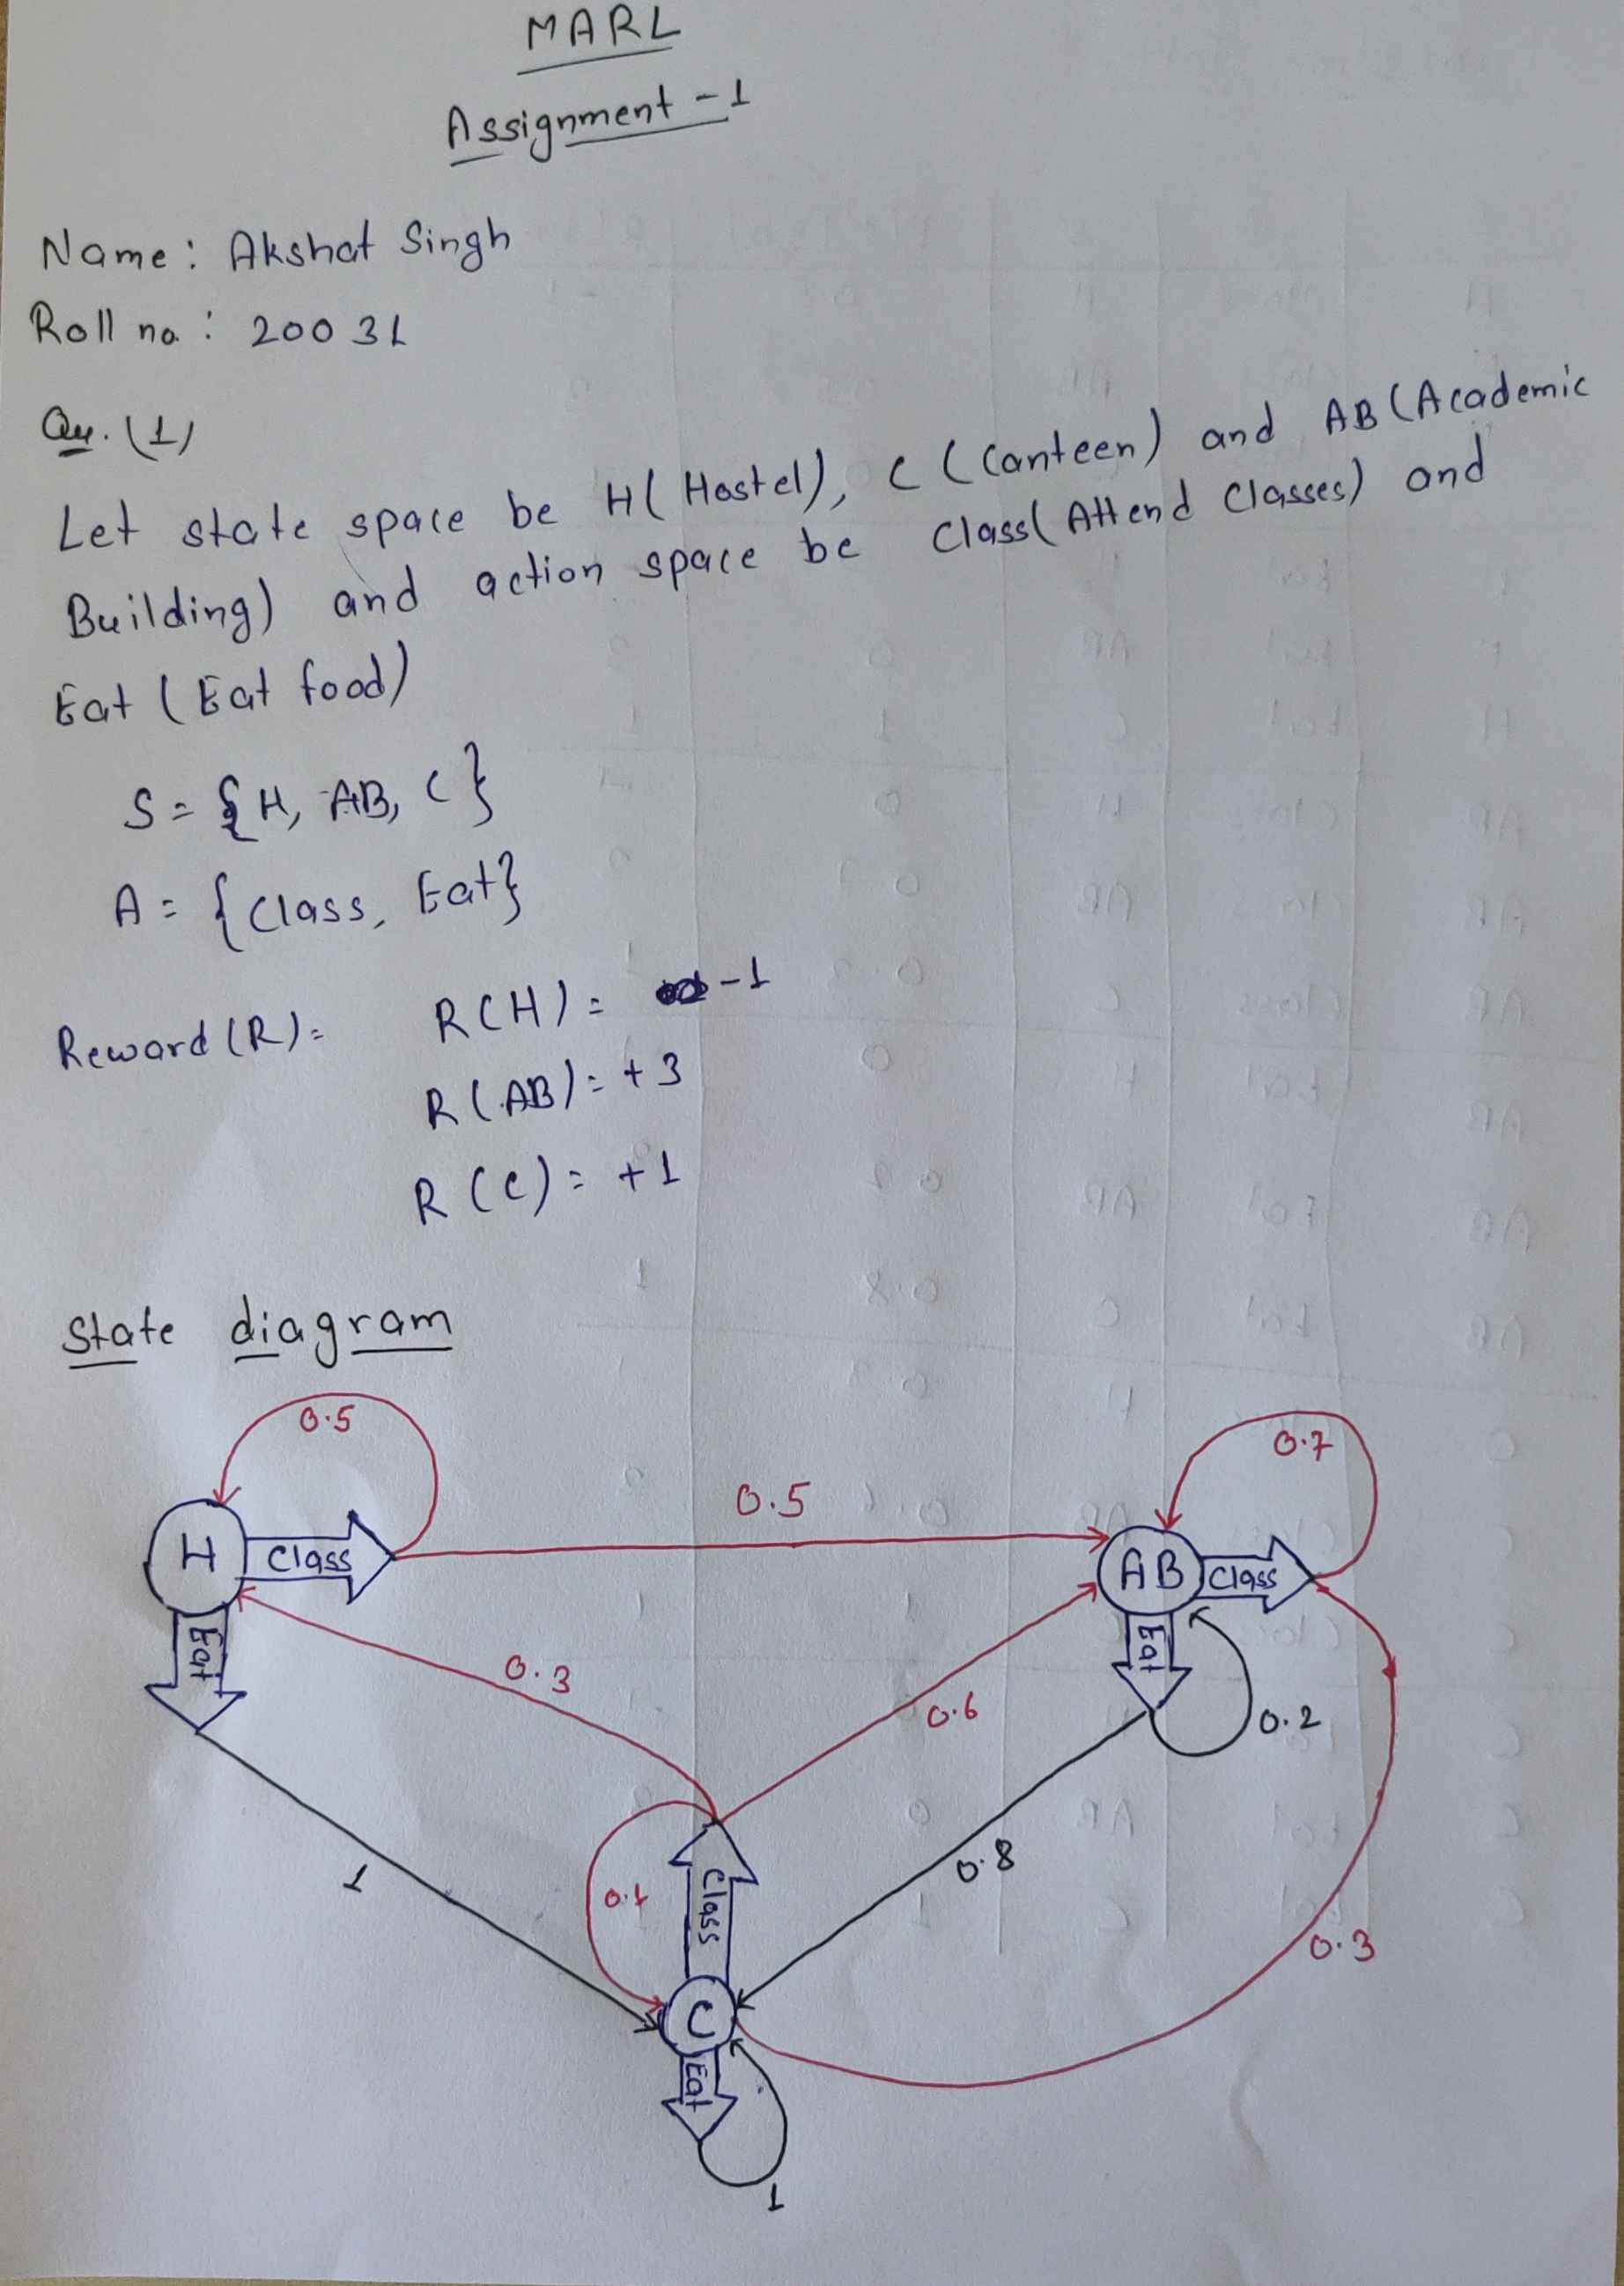 MARL
Assignment - 1
Name: Akshat Singh
Roll no.: 20031
Qu. (1)
Let state space be H( Hostel), C (Canteen) and AB (Academic
Building) and action space be Class( Attend Classes) and
Eat ( Eat food)
S = {H, AB, C}
A = {Class, Eat}
Reward (R) = R(H) = -1
R(AB) = +3
R(C) = +1
State diagram
0.5
0.7
0.5
H Class
AB Class
Eat
Eat
0.3
0.6
0.2
1
0.1
Class
0.8
0.3
C
Eat
1